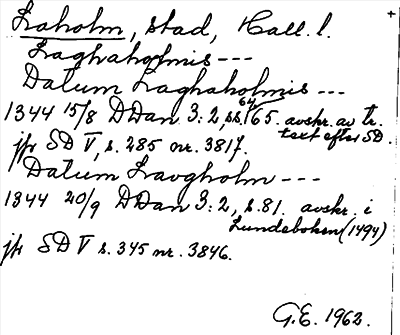 Laholm, stad, Hall. l.
Laghaholmis ---
Datum Laghaholmis ---
1344 15/8 DDan 3:2, s. 64, 65. avskr. av tr.
text efter SD.
jfr SD V, s. 285 nr. 3817.
Datum Lavgholm ---
1344 20/9 DDan 3:2, s. 81. avskr. i
Lundeboken (1494)
jfr SD V s. 345 nr. 3846.
G.E. 1962.